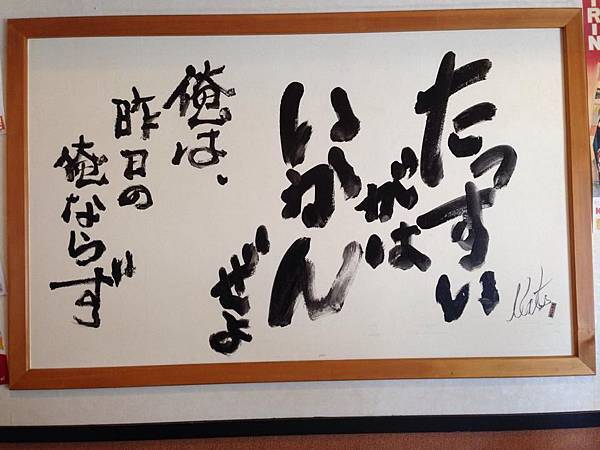 たっすい
がは
いかん
ぜよ
俺は、
昨日の
俺ならず
Kats
RIN